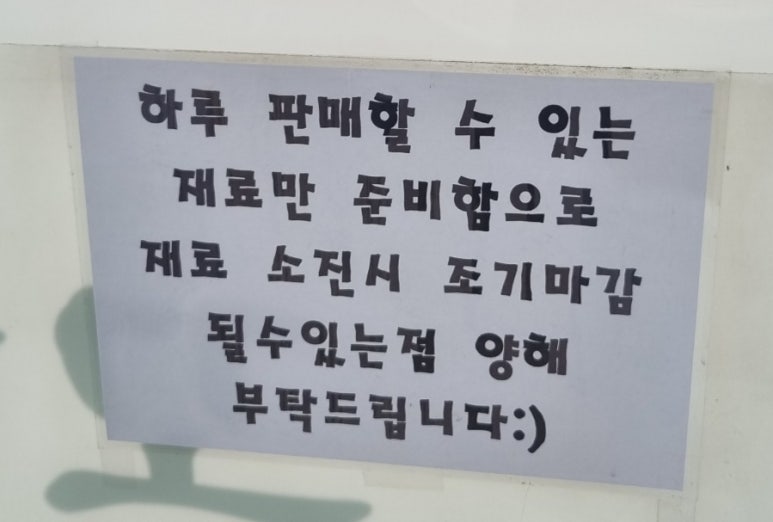 하루 판매할 수 있는
재료만 준비함으로
재료 소진시 조기마감
될수있는점 양해
부탁드립니다:)